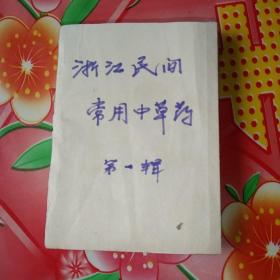 浙江民间
常用中草药
第一辑